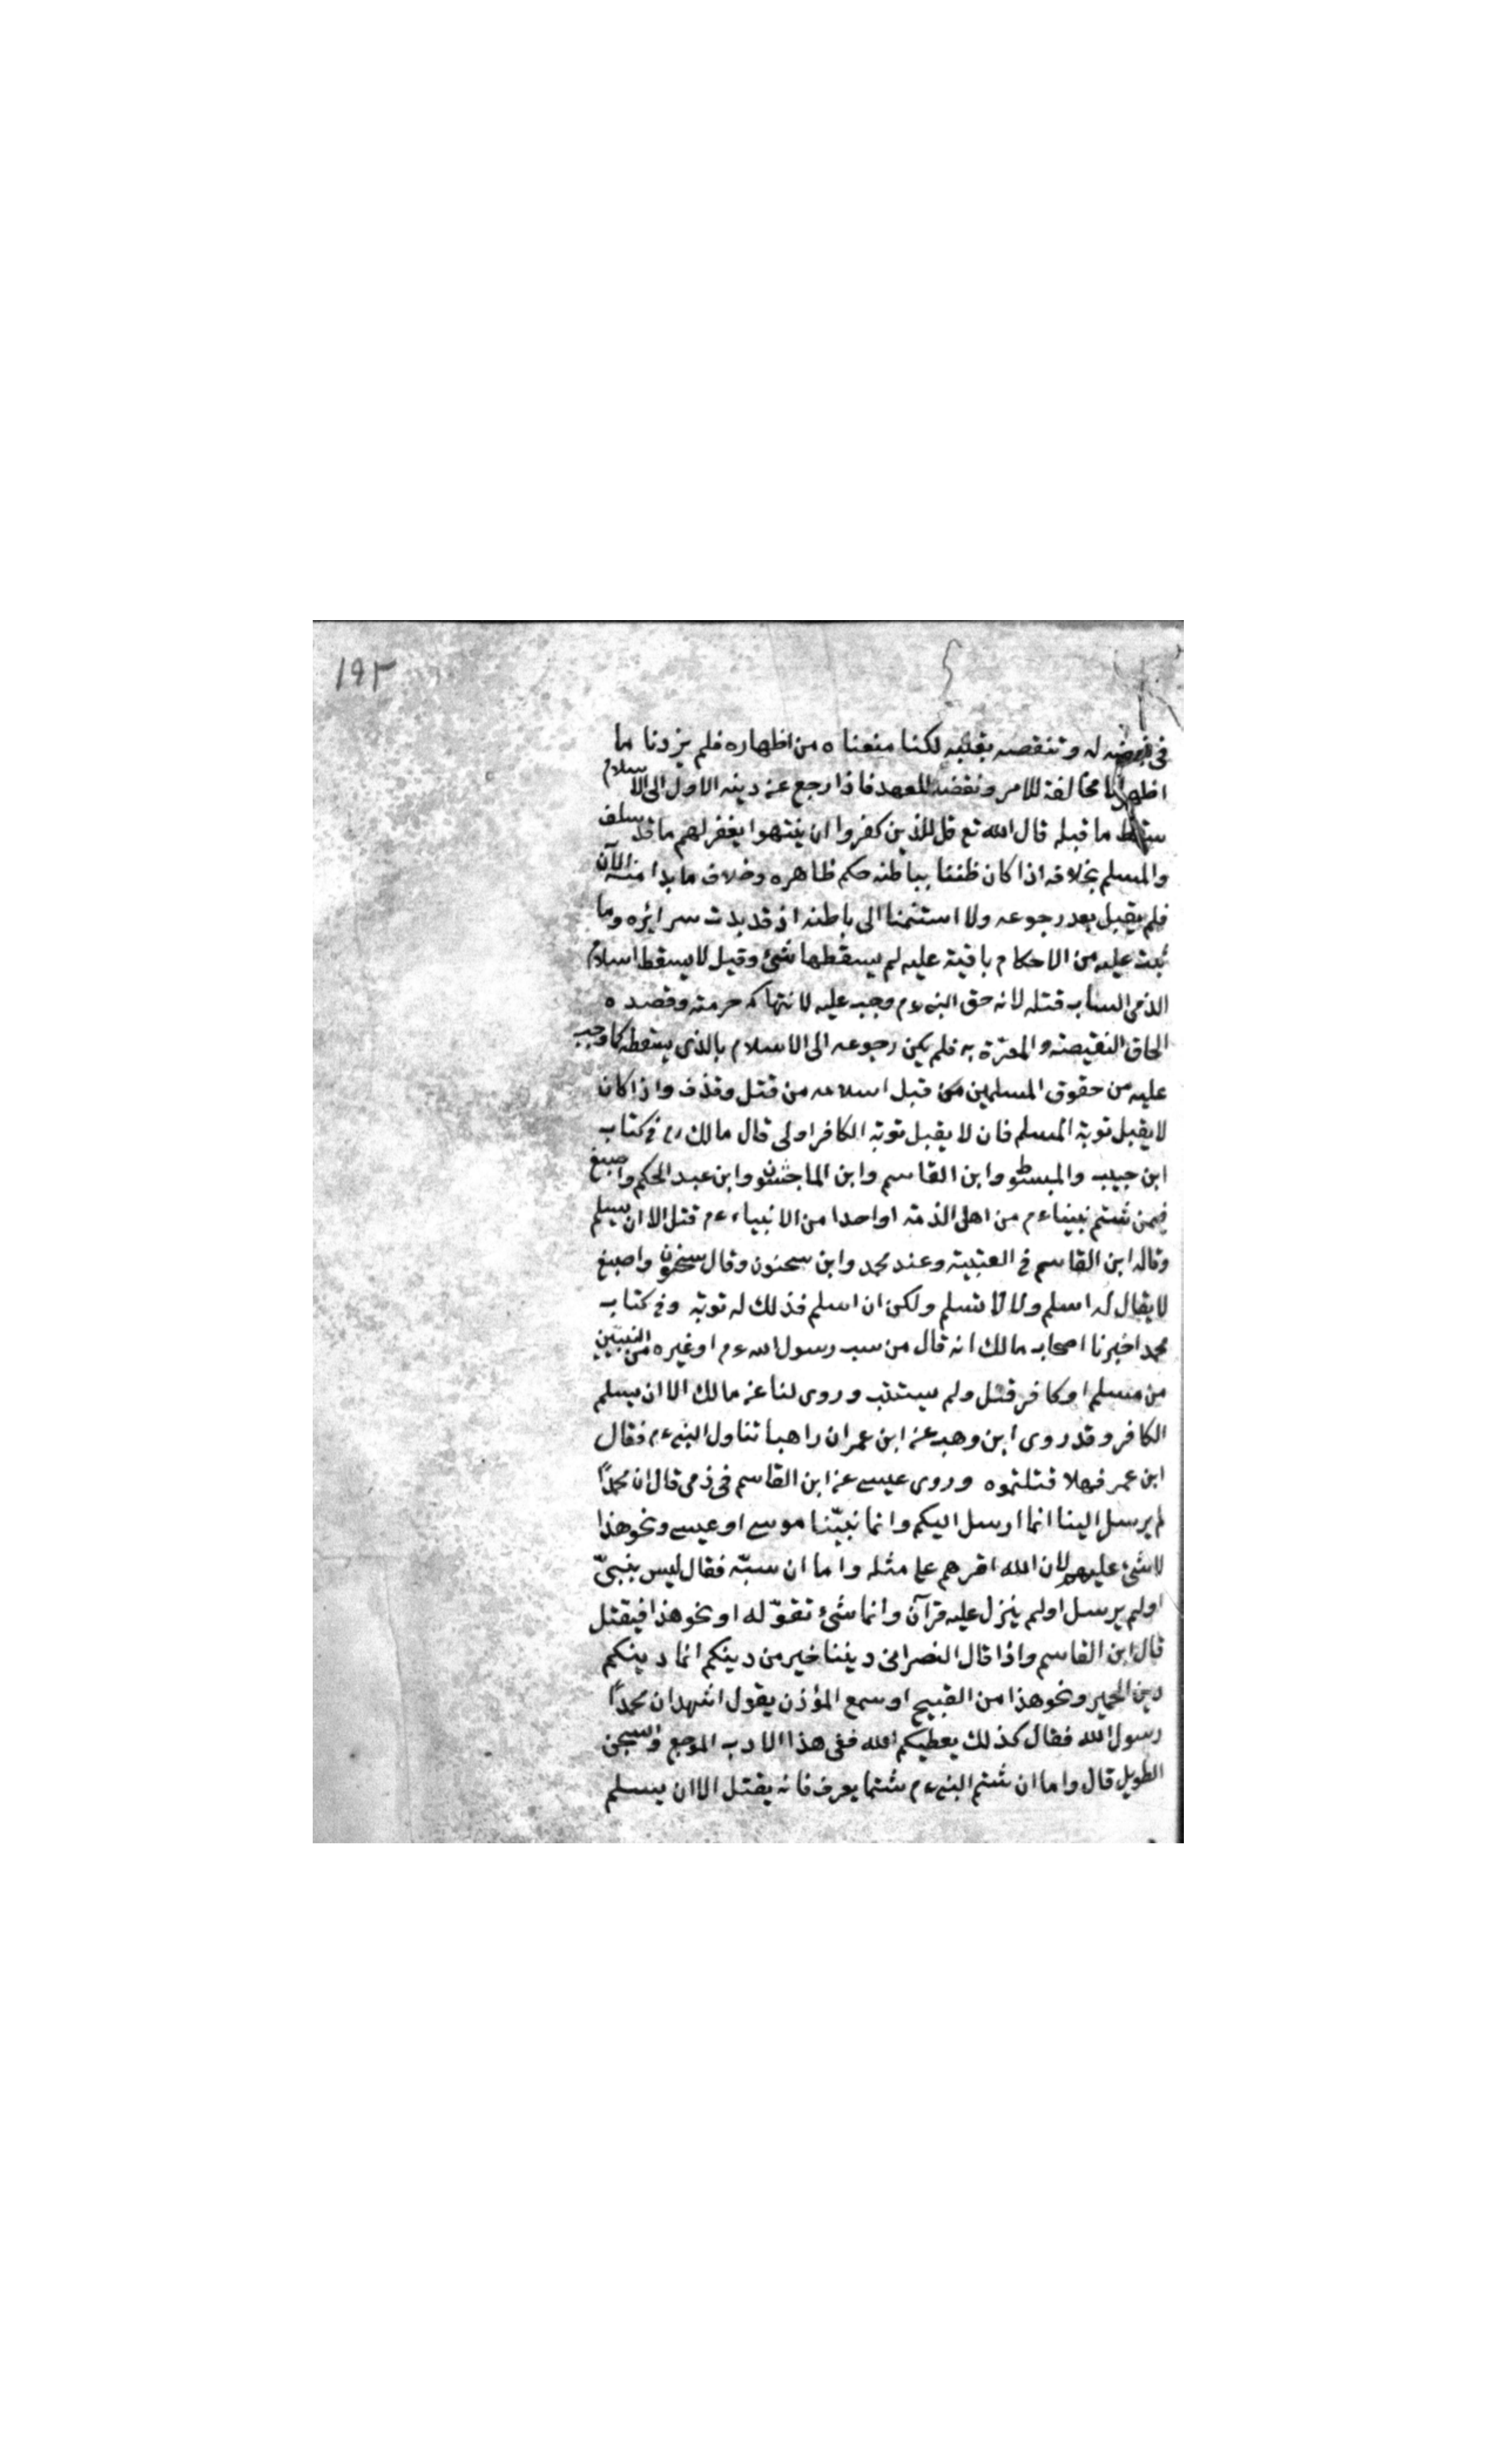 ١٩٢
في بغضه له وتنقصه بقلبه لكنا منعناه من اظهاره فلم يزدنا ما
اظهره الا مخالفة للامر ونقضا للعهد فاذا رجع عن دينه الاول الى الاسلام
سقط ما قبله قال الله تع قل للذين كفروا ان ينتهوا يغفر لهم ما قد سلف
والمسلم بخلافه اذا كان ظننا بباطنه حكم ظاهره وخلاف ما بدا منه الآن
فلم يقبل بعد رجوعه ولا استنمنا الى باطنه اذ قد بدت سرائره وما
ثبت عليه من الاحكام باقية عليه لم يسقطها شئ وقيل لا يسقط اسلام
الذمي الساب قتله لانه حق النبي عم وجب عليه لانتهاكه حرمته وقصده
الحاق النقيصة والمعرة به فلم يكن رجوعه الى الاسلام بالذي يسقطه كما وجب
عليه من حقوق المسلمين من قبل اسلامه من قتل وقذف واذا كان
لا يقبل توبة المسلم فان لا يقبل توبة الكافر اولى قال مالك رح في كتاب
ابن حبيب والمبسوط وابن القاسم وابن الماجشون وابن عبد الحكم واصبغ
فيمن شتم نبينا عم من اهل الذمة او احدا من الانبياء عم قتل الا ان يسلم
وقاله ابن القاسم في العتبية وعند محمد وابن سحنون وقال سحنون واصبغ
لا يقال له اسلم ولا لا تسلم ولكن ان اسلم فذلك له توبة وفي كتاب
محمد اخبرنا اصحاب مالك انه قال من سب رسول الله عم او غيره من النبيين
من مسلم او كافر قتل ولم يستتب وروى لنا عن مالك الا ان يسلم
الكافر وقد روى ابن وهب عن ابن عمر ان راهبا تناول النبي عم فقال
ابن عمر فهلا قتلتموه وروى عيسى عن ابن القاسم في ذمي قال ان محمدًا
لم يرسل الينا انما ارسل اليكم وانما نبيّنا موسى او عيسى ونحو هذا
لا شئ عليهم لان الله اقرهم على مثله واما ان سبّه فقال ليس بنبيّ
او لم يرسل او لم ينزل عليه قرآن وانما شئ تقوّله او نحو هذا فيقتل
قال ابن القاسم واذا قال النصراني ديننا خير من دينكم انما دينكم
دين الحمير ونحو هذا من القبيح او سمع المؤذن يقول اشهد ان محمدًا
رسول الله فقال كذلك يعطيكم الله ففي هذا الادب الموجع والسجن
الطويل قال واما ان شتم النبي عم شتما يعرف فانه يقتل الا ان يسلم